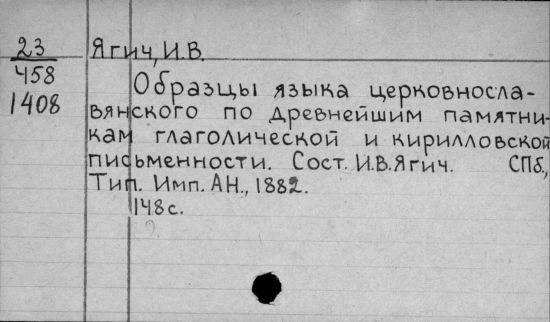 23
458
1408
Ягич, И.В.
Образцы языка церковносла-
вянского по древнейшим памятни-
кам глаголической и кирилловской
письменности. Сост. И.В.Ягич. СПб.,
Тип. Имп. АН., 1882.
148 с.